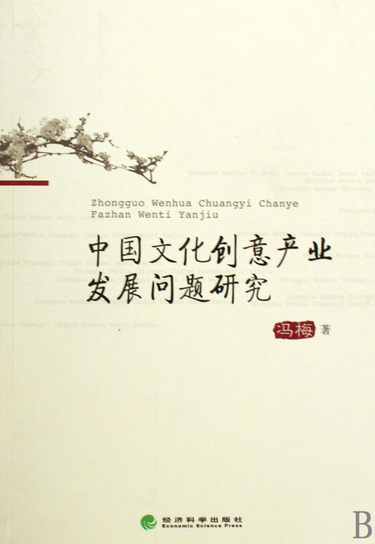 Zhongguo Wenhua Chuangyi Chanye
Fazhan Wenti Yanjiu
中国文化创意产业
发展问题研究
冯梅 著
经济科学出版社
Economic Science Press
B